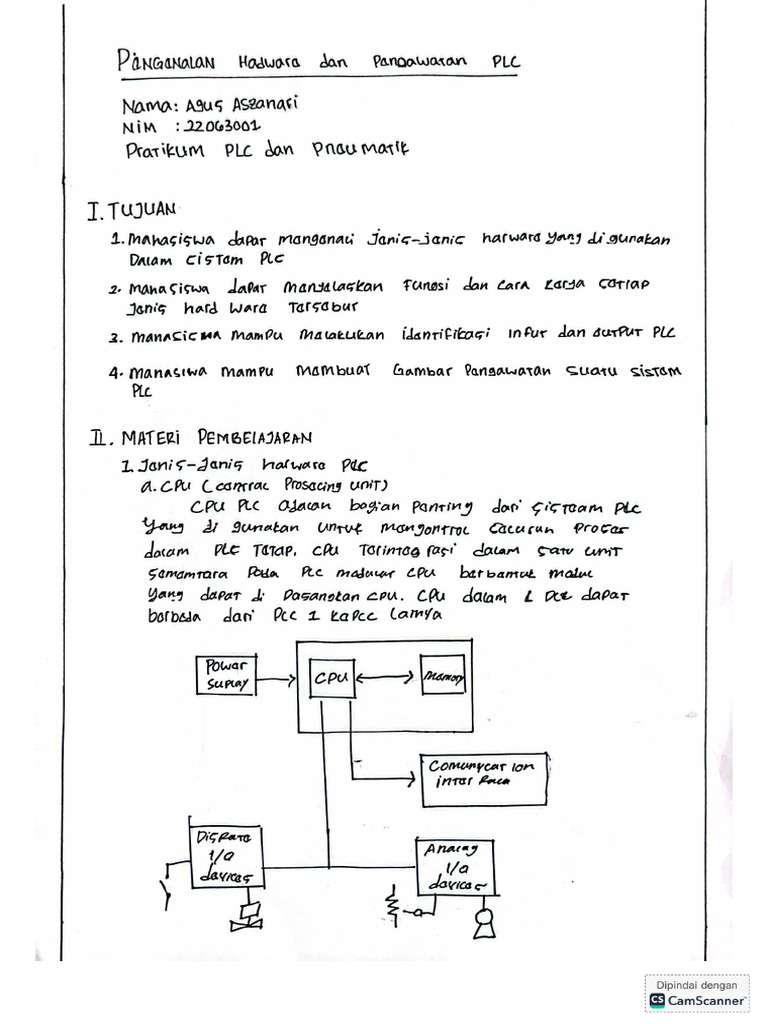 PENGENALAN Hadware dan Pengawatan PLC
Nama: Agus Asranari
NIM : 22063001
Pratikum PLC dan Pneumatik
I. TUJUAN
1. Mahasiswa dapat mengenali jenis-jenis harware yang di gunakan
Dalam sistem PLC
2. Mahasiswa dapat menjelaskan Fungsi dan cara kerja setiap
jenis hard ware tersebut
3. Mahasiswa mampu melakukan identifikasi input dan output PLC
4. Mahasiwa mampu membuat Gambar Pengawatan suatu sistem
PLC
II. MATERI PEMBELAJARAN
1. Jenis-Jenis harware PLC
a. CPU (central Prosecing unit)
CPU PLC adalah bagian penting dari sisteam PLC
Yang di gunakan untuk mengontrol seluruh proses
dalam PLC Tetap, CPU Terintegrasi dalam satu unit
sementara Pada PLC modular CPU berbentuk modul
yang dapat di Pasangkan CPU. CPU dalam 1 PLC dapat
berbeda dari PLC 1 ke PLC lainya
Power
Suplay
CPU
Memory
Comunycation
inter Face
Discrete
I/O
devices
Analog
I/O
devices
Dipindai dengan
CS CamScanner